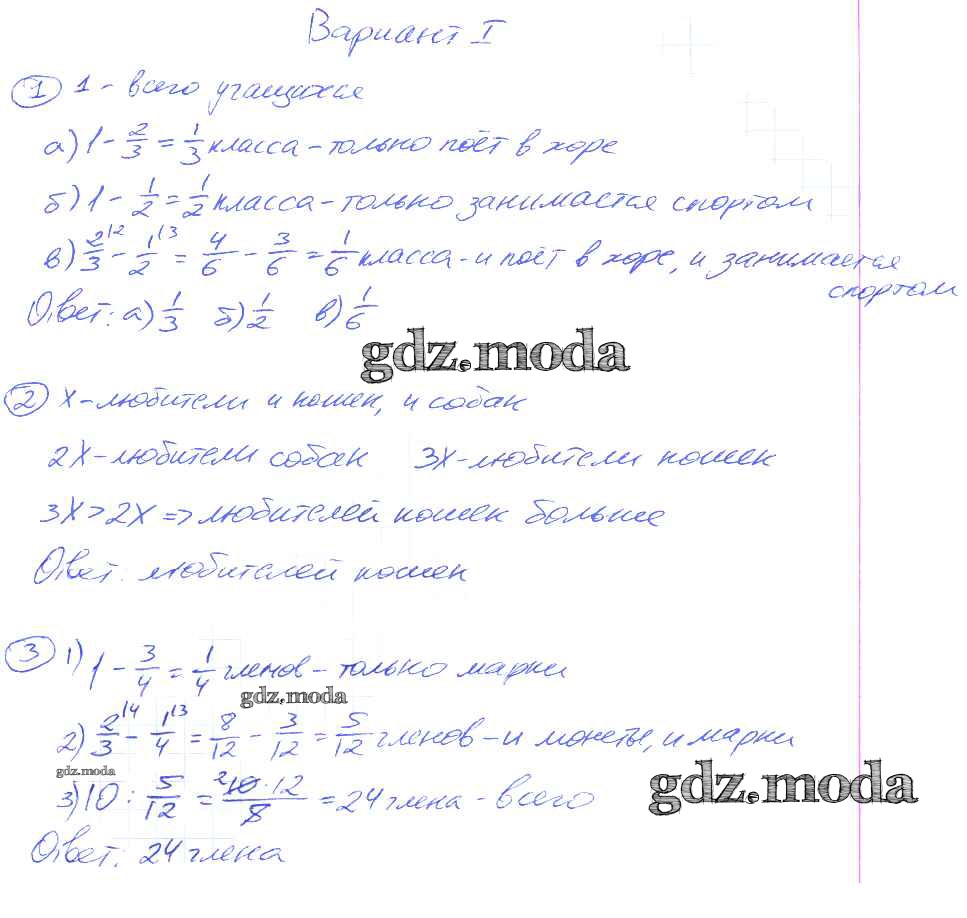 Вариант I
1 1 - всего учащихся
а) 1 - 2/3 = 1/3 класса - только поёт в хоре
б) 1 - 1/2 = 1/2 класса - только занимается спортом
в) 2/3 |2 - 1/2 |3 = 4/6 - 3/6 = 1/6 класса - и поёт в хоре, и занимается
спортом
Ответ: а) 1/3 б) 1/2 в) 1/6
gdz.moda
2 х - любители и кошек, и собак
2х - любители собак 3х - любители кошек
3х > 2х => любителей кошек больше
Ответ: любителей кошек
3 1) 1 - 3/4 = 1/4 членов - только марки
gdz.moda
2) 2/3 |4 - 1/4 |3 = 8/12 - 3/12 = 5/12 членов - и монеты, и марки
gdz.moda
3) 10 : 5/12 = 2 10 · 12/5 = 24 члена - всего
gdz.moda
Ответ: 24 члена